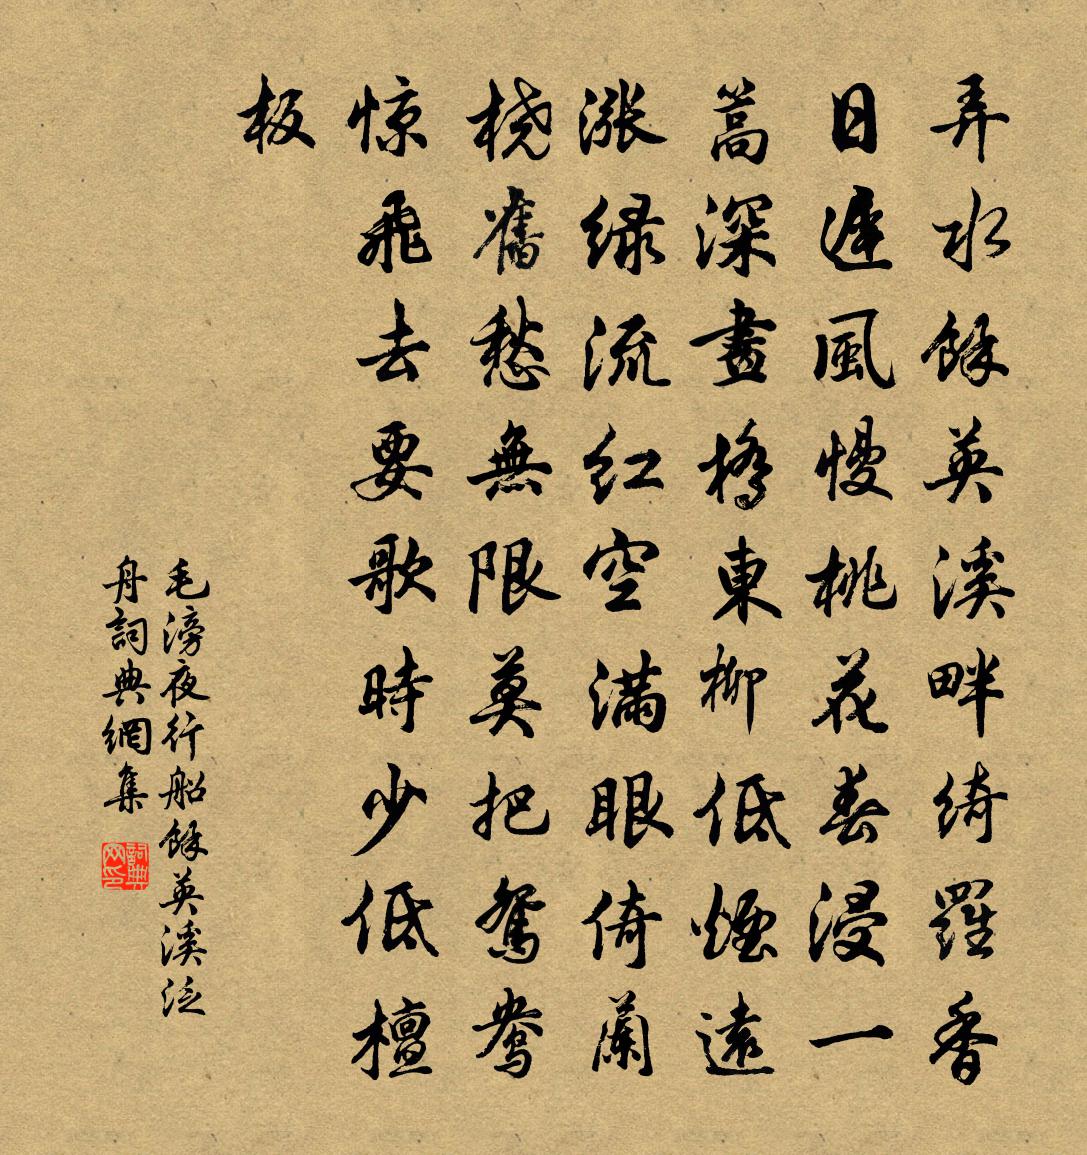 弄水餘英溪畔綺羅香
日遲風慢桃花春浸一
蒿深畫橋東柳低煙遠
漲綠流紅空滿眼倚蘭
橈舊愁無限莫把鴛鴦
惊飛去要歌時少低檀
板
毛滂夜行船餘英溪泛
舟詞典網集
詞典
网印